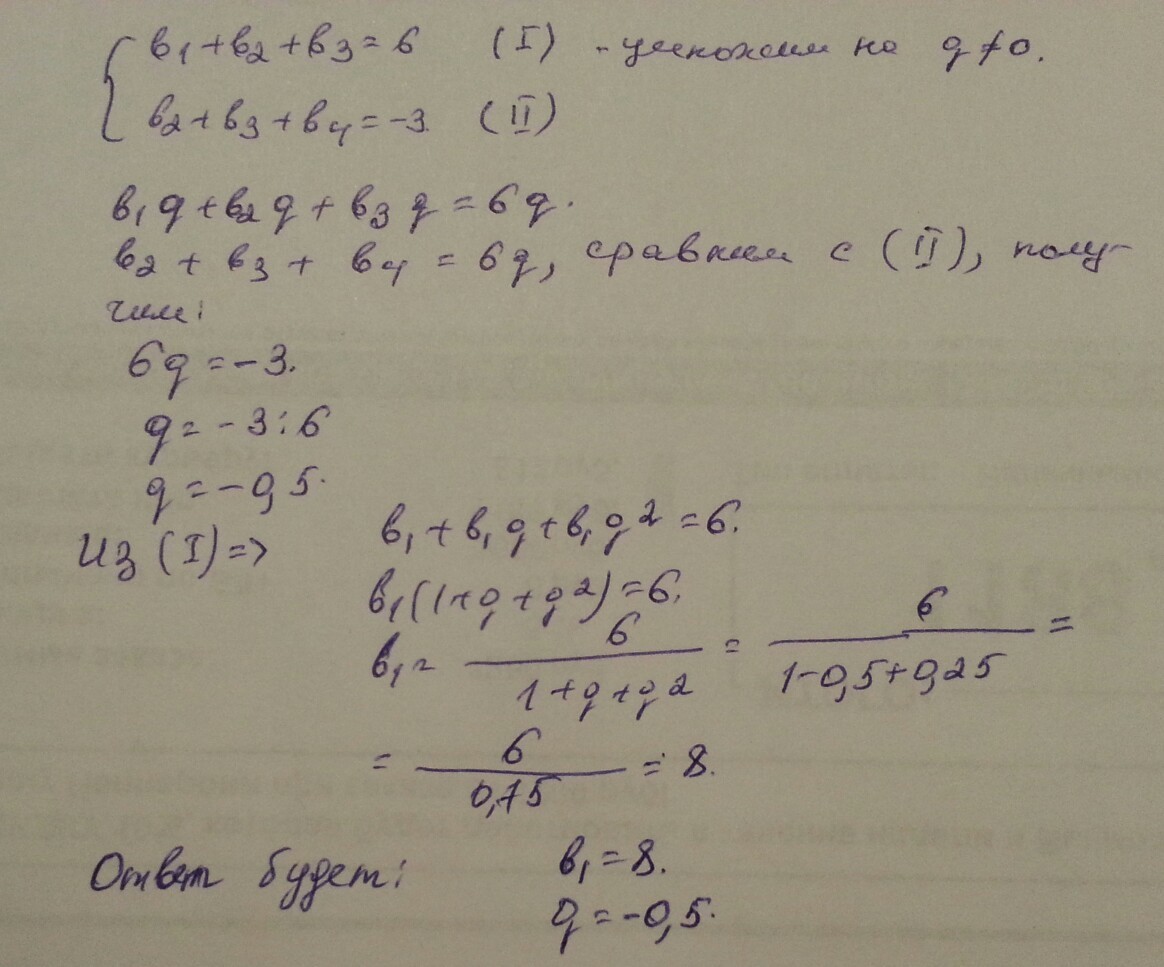 в1 + в2 + в3 = 6 (I) - умножим на q ≠ 0.
в2 + в3 + в4 = -3. (II)
в1 q + в2 q + в3 q = 6q.
в2 + в3 + в4 = 6q, сравним с (II), полу-
чим:
6q = -3.
q = -3 : 6
q = -0,5.
Из (I) => в1 + в1 q + в1 q² = 6.
в1 (1 + q + q²) = 6.
в1 = 6 / (1 + q + q²) = 6 / (1 - 0,5 + 0,25) =
= 6 / 0,75 = 8.
Ответ будет: в1 = 8.
q = -0,5.